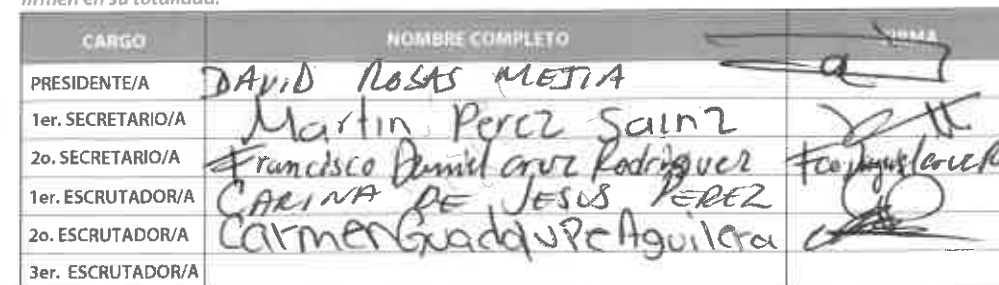 firmen en su totalidad.
CARGO NOMBRE COMPLETO FIRMA
PRESIDENTE/A DAVID ROSAS MEJIA
1er. SECRETARIO/A Martin Perez Sainz
2o. SECRETARIO/A Francisco Daniel cruz Rodriguez
1er. ESCRUTADOR/A CARINA DE JESUS PEREZ
2o. ESCRUTADOR/A Carmen Guadalupe Aguilera
3er. ESCRUTADOR/A